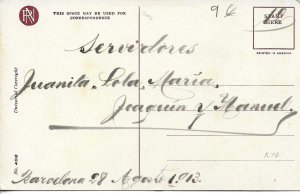 THIS SPACE MAY BE USED FOR
CORRESPONDENCE
9
STAMP
HERE
PRINTED IN AMERICA
Servidores
Juanita, Lola, María,
Joaquín y Manuel.
Barcelona 28 Agosto 1913.